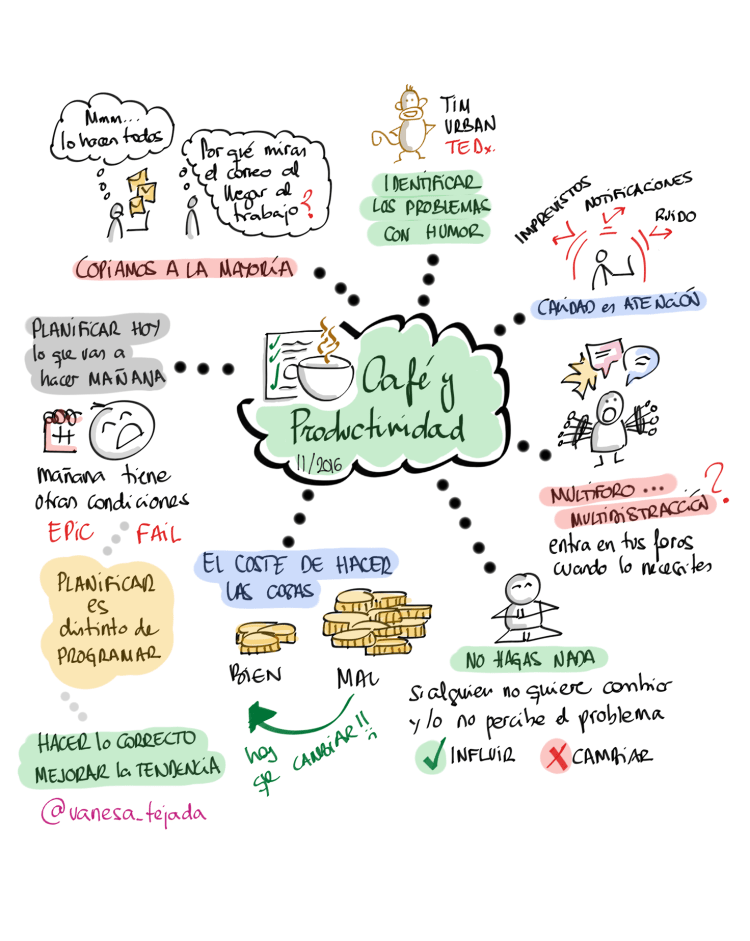 Mmm...
lo hacen todos
Por qué miras
el correo al
llegar al
trabajo?
COPIAMOS A LA MAYORÍA
TIM
URBAN
TEDx.
IDENTIFICAR
LOS PROBLEMAS
CON HUMOR
IMPREVISTOS
NOTIFICACIONES
RUIDO
CALIDAD es ATENCIÓN
PLANIFICAR HOY
lo que vas a
hacer MAÑANA
mañana tiene
otras condiciones
EPIC FAIL
PLANIFICAR
es
distinto de
PROGRAMAR
HACER lo CORRECTO
MEJORAR la TENDENCIA
@vanesa_tejada
Café y
Productividad
11/2016
MULTIFORO ...
MULTIDISTRACCIÓN?
entra en tus foros
cuando lo necesites
EL COSTE DE HACER
LAS COSAS
BIEN
MAL
hay
qe CAMBIAR!!
NO HAGAS NADA
Si alguien no quiere cambiar
y/o no percibe el problema
INFLUIR
CAMBIAR